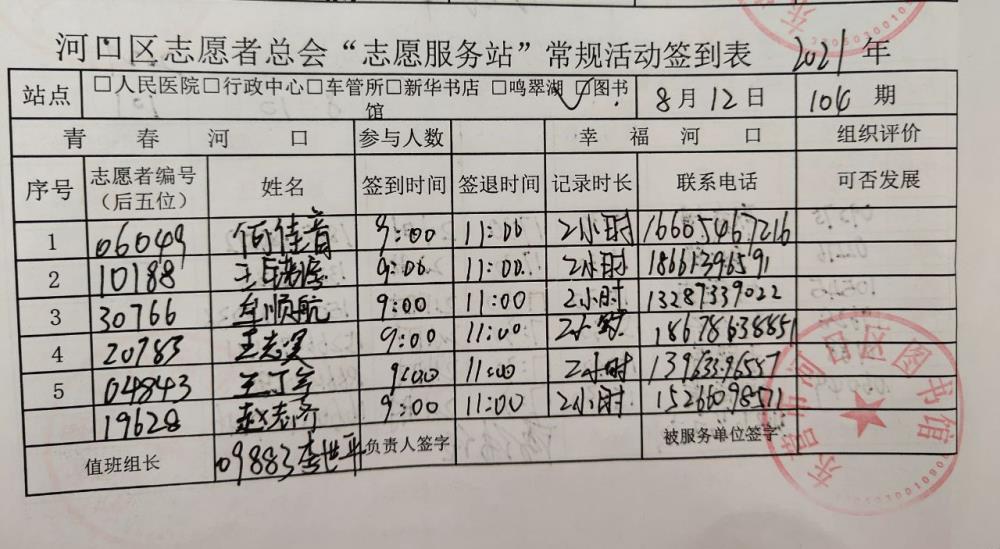 河口区志愿者总会“志愿服务站”常规活动签到表 2021年
站点 □人民医院□行政中心□车管所□新华书店 □鸣翠湖□图书馆 8月12日 104期
青春河口 参与人数 幸福河口 组织评价
序号 志愿者编号（后五位） 姓名 签到时间 签退时间 记录时长 联系电话 可否发展
1 06049 何佳音 9:00 11:00 2小时 16605467216
2 10188 9:00 11:00 2小时 18661396591
3 30766 牟顺航 9:00 11:00 2小时 13287339022
4 20783 9:00 11:00 2小时 18678638851
5 04843 9:00 11:00 2小时
19628 9:00 11:00 2小时 15266098571
值班组长 09883李世平 负责人签字 被服务单位签字
东营市河口区图书馆